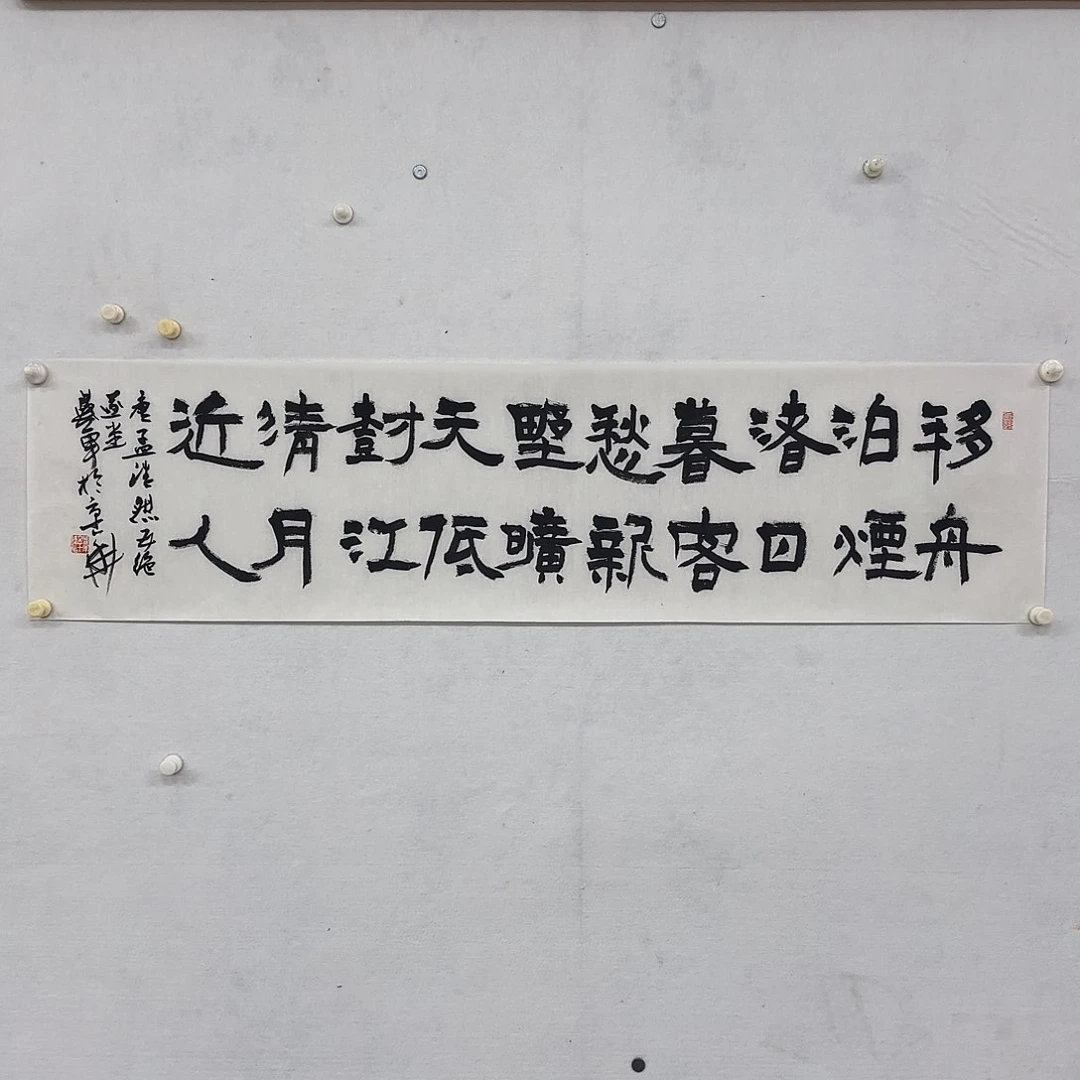 移舟
泊煙
渚日
暮客
愁新
野曠
天低
樹江
清月
近人
唐孟浩然五絕
於京華